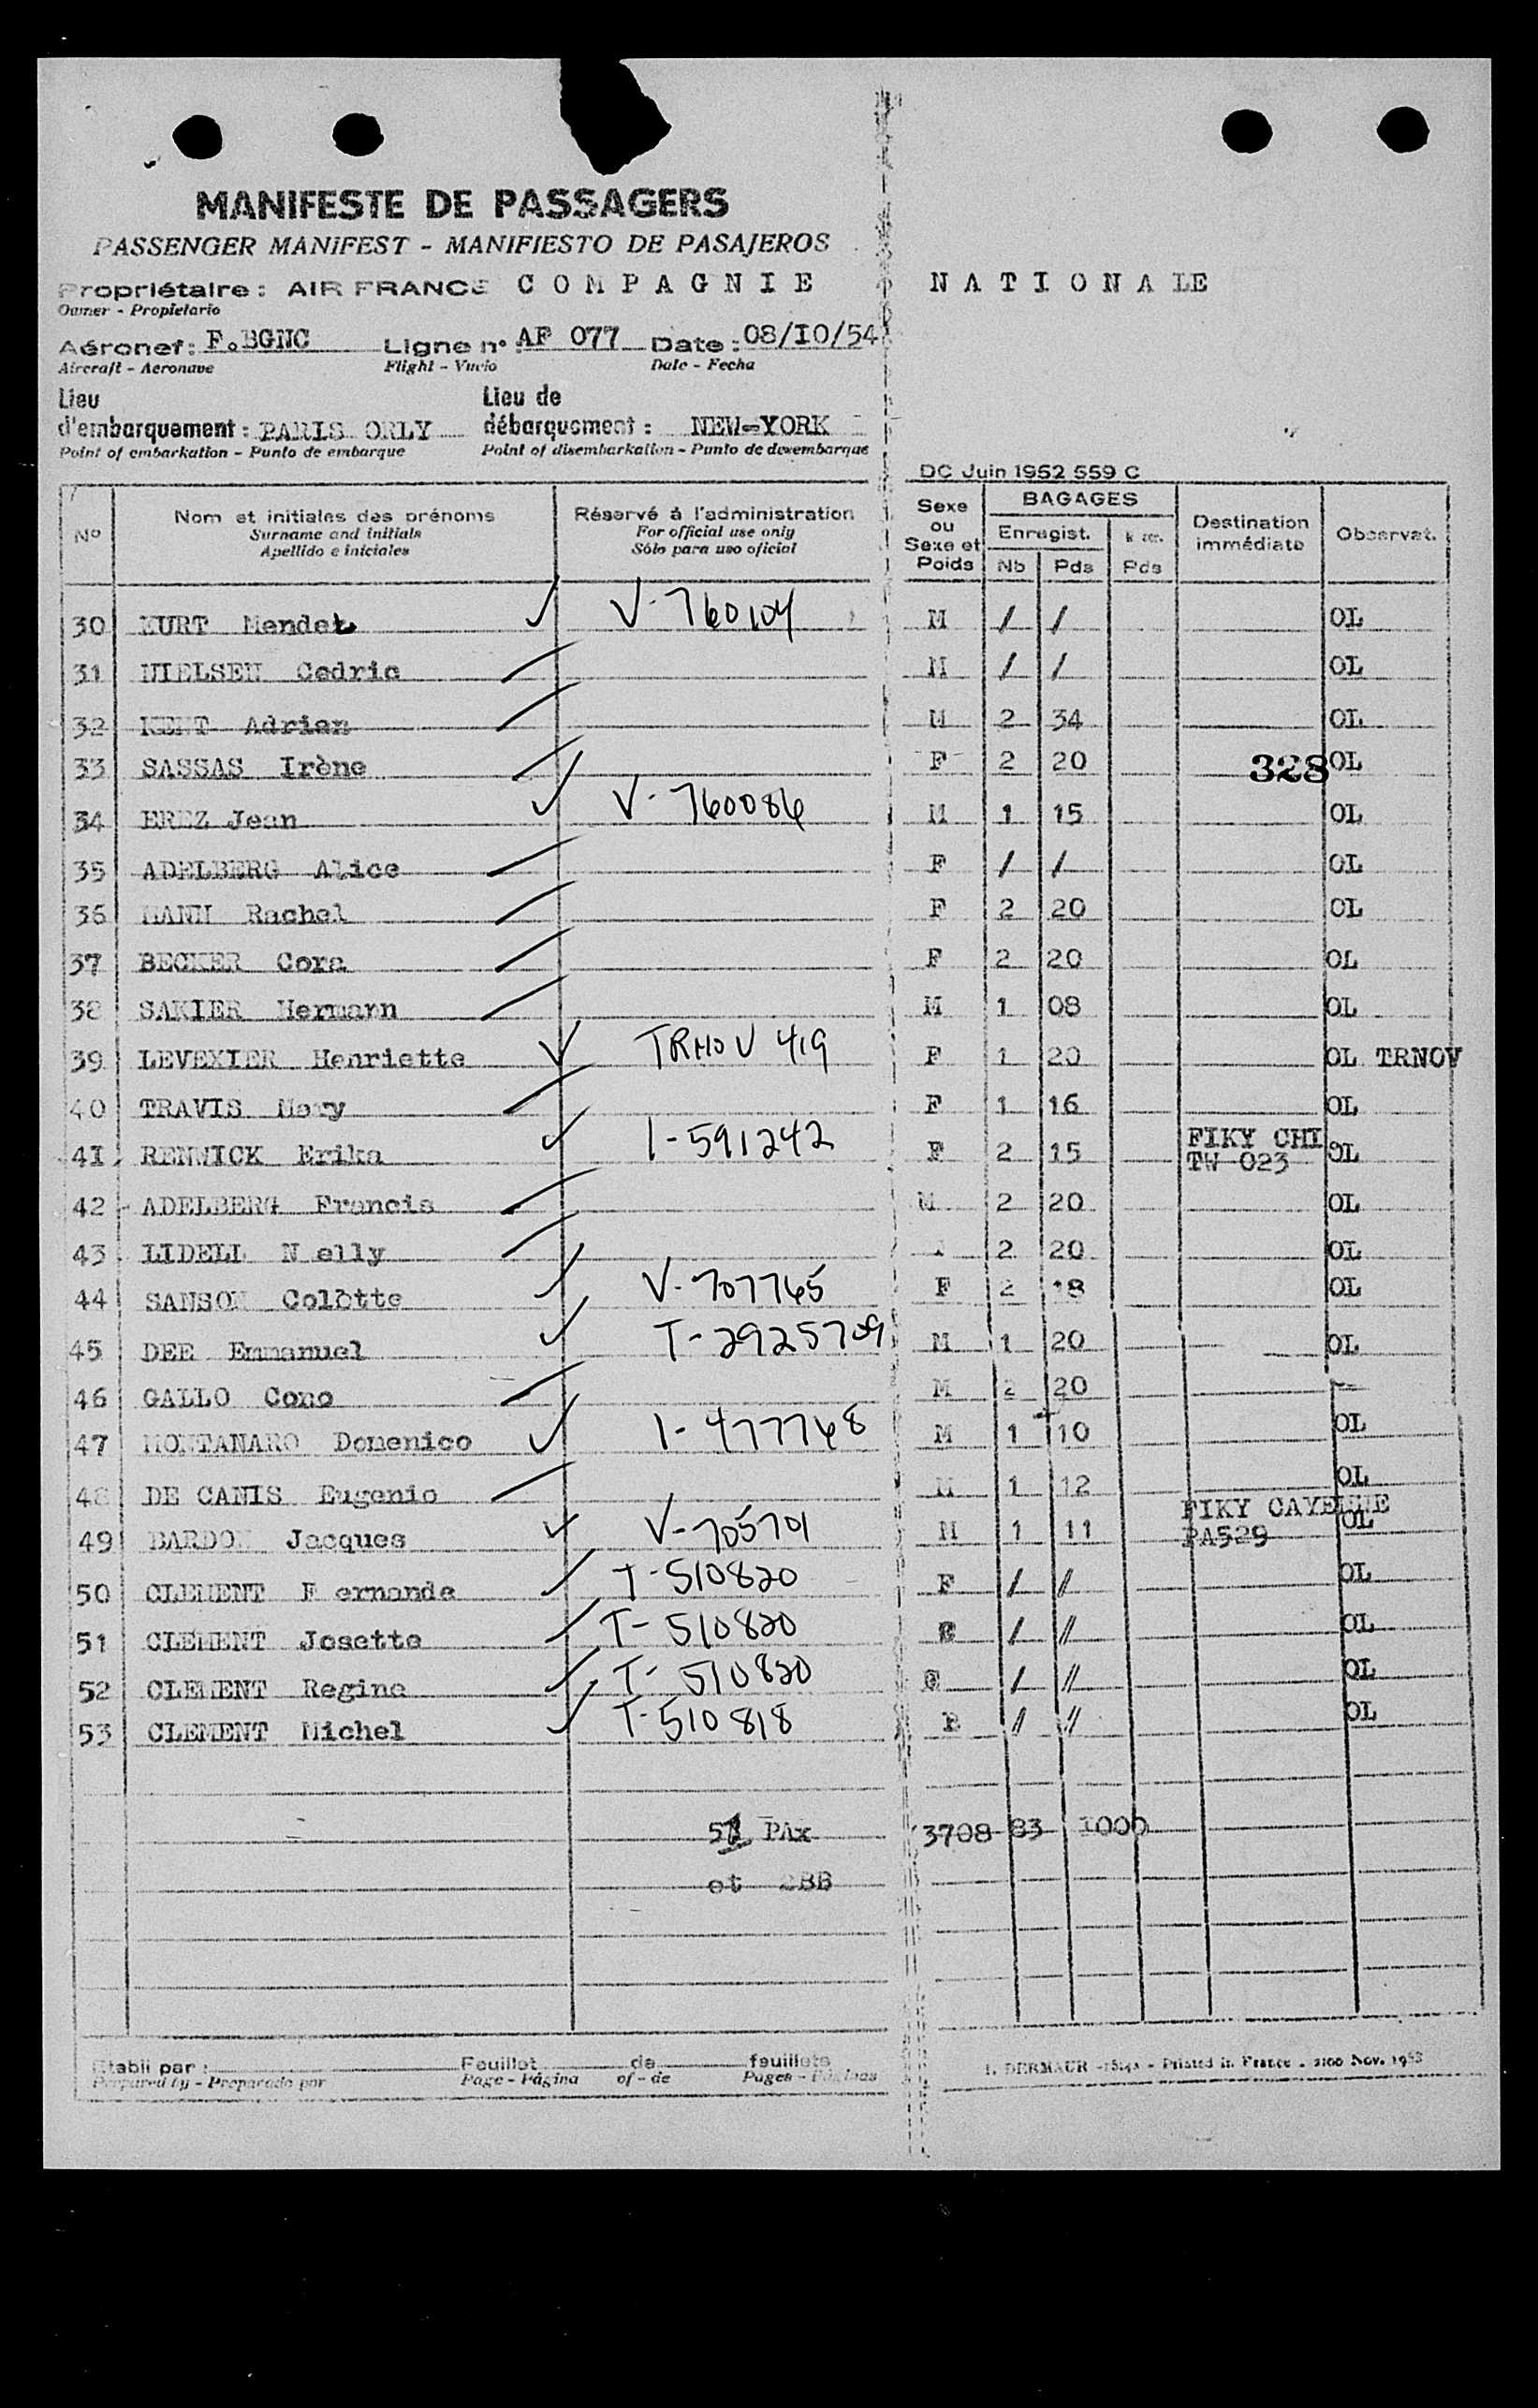 MANIFESTE DE PASSAGERS
PASSENGER MANIFEST - MANIFIESTO DE PASAJEROS
Propriétaire : AIR FRANCE C O M P A G N I E N A T I O N A LE
Owner - Propietario
Aéronef : F.BGNC Ligne n° : AF 077 Date : 08/I0/54
Aircraft - Aeronave Flight - Vuelo Date - Fecha
Lieu Lieu de
d'embarquement : PARIS ORLY débarquement : NEW-YORK
Point of embarkation - Punto de embarque Point of disembarkation - Punto de desembarque
DC Juin 1952 559 C
N° Nom et initiales des prénoms Réservé à l'administration Sexe ou Sexe et Poids BAGAGES Destination immédiate Observat.
Surname and initials For official use only Enregist.
Apellido e iniciales Sólo para uso oficial Nb Pds Pds
30 KURT Mendel V-760104 M / / OL
31 NIELSEN Cedric M / / OL
32 KENT Adrian M 2 34 OL
33 SASSAS Irène F 2 20 328 OL
34 EREZ Jean V-760086 M 1 15 OL
35 ADELBERG Alice F / / OL
36 MANN Rachel F 2 20 OL
37 BECKER Cora F 2 20 OL
38 SAKIER Hermann M 1 08 OL
39 LEVEXIER Henriette 419 F 1 20 OL TRNOV
40 TRAVIS Mary F 1 16 OL
4I RENWICK Erika I-591242 F 2 15 FIKY CHI TW 023 OL
42 ADELBERG Francis M 2 20 OL
43 LIDELL N elly 2 20 OL
44 SANSON Colette V-707765 F 2 18 OL
45 DEE Emmanuel T-2925709 M 1 20 OL
46 GALLO Cono M 2 20
47 MONTANARO Domenico I-477768 M 1 10 OL
48 DE CANIS Eugenio M 1 12 OL
49 BARDON Jacques V-705701 M 1 11 FIKY CAYENNE PA529 OL
50 CLEMENT F ernande T-510820 F / // OL
51 CLEMENT Josette T-510820 / // OL
52 CLEMENT Regine T-510820 / // OL
53 CLEMENT Michel T-510818 B // // OL
PAx 3708 83 I000
et 2BB
Etabli par : Feuillet de feuillets
Prepared by - Preparado por Page - Página of - de Pages - Páginas
Printed in France - 2100 Nov. 1953